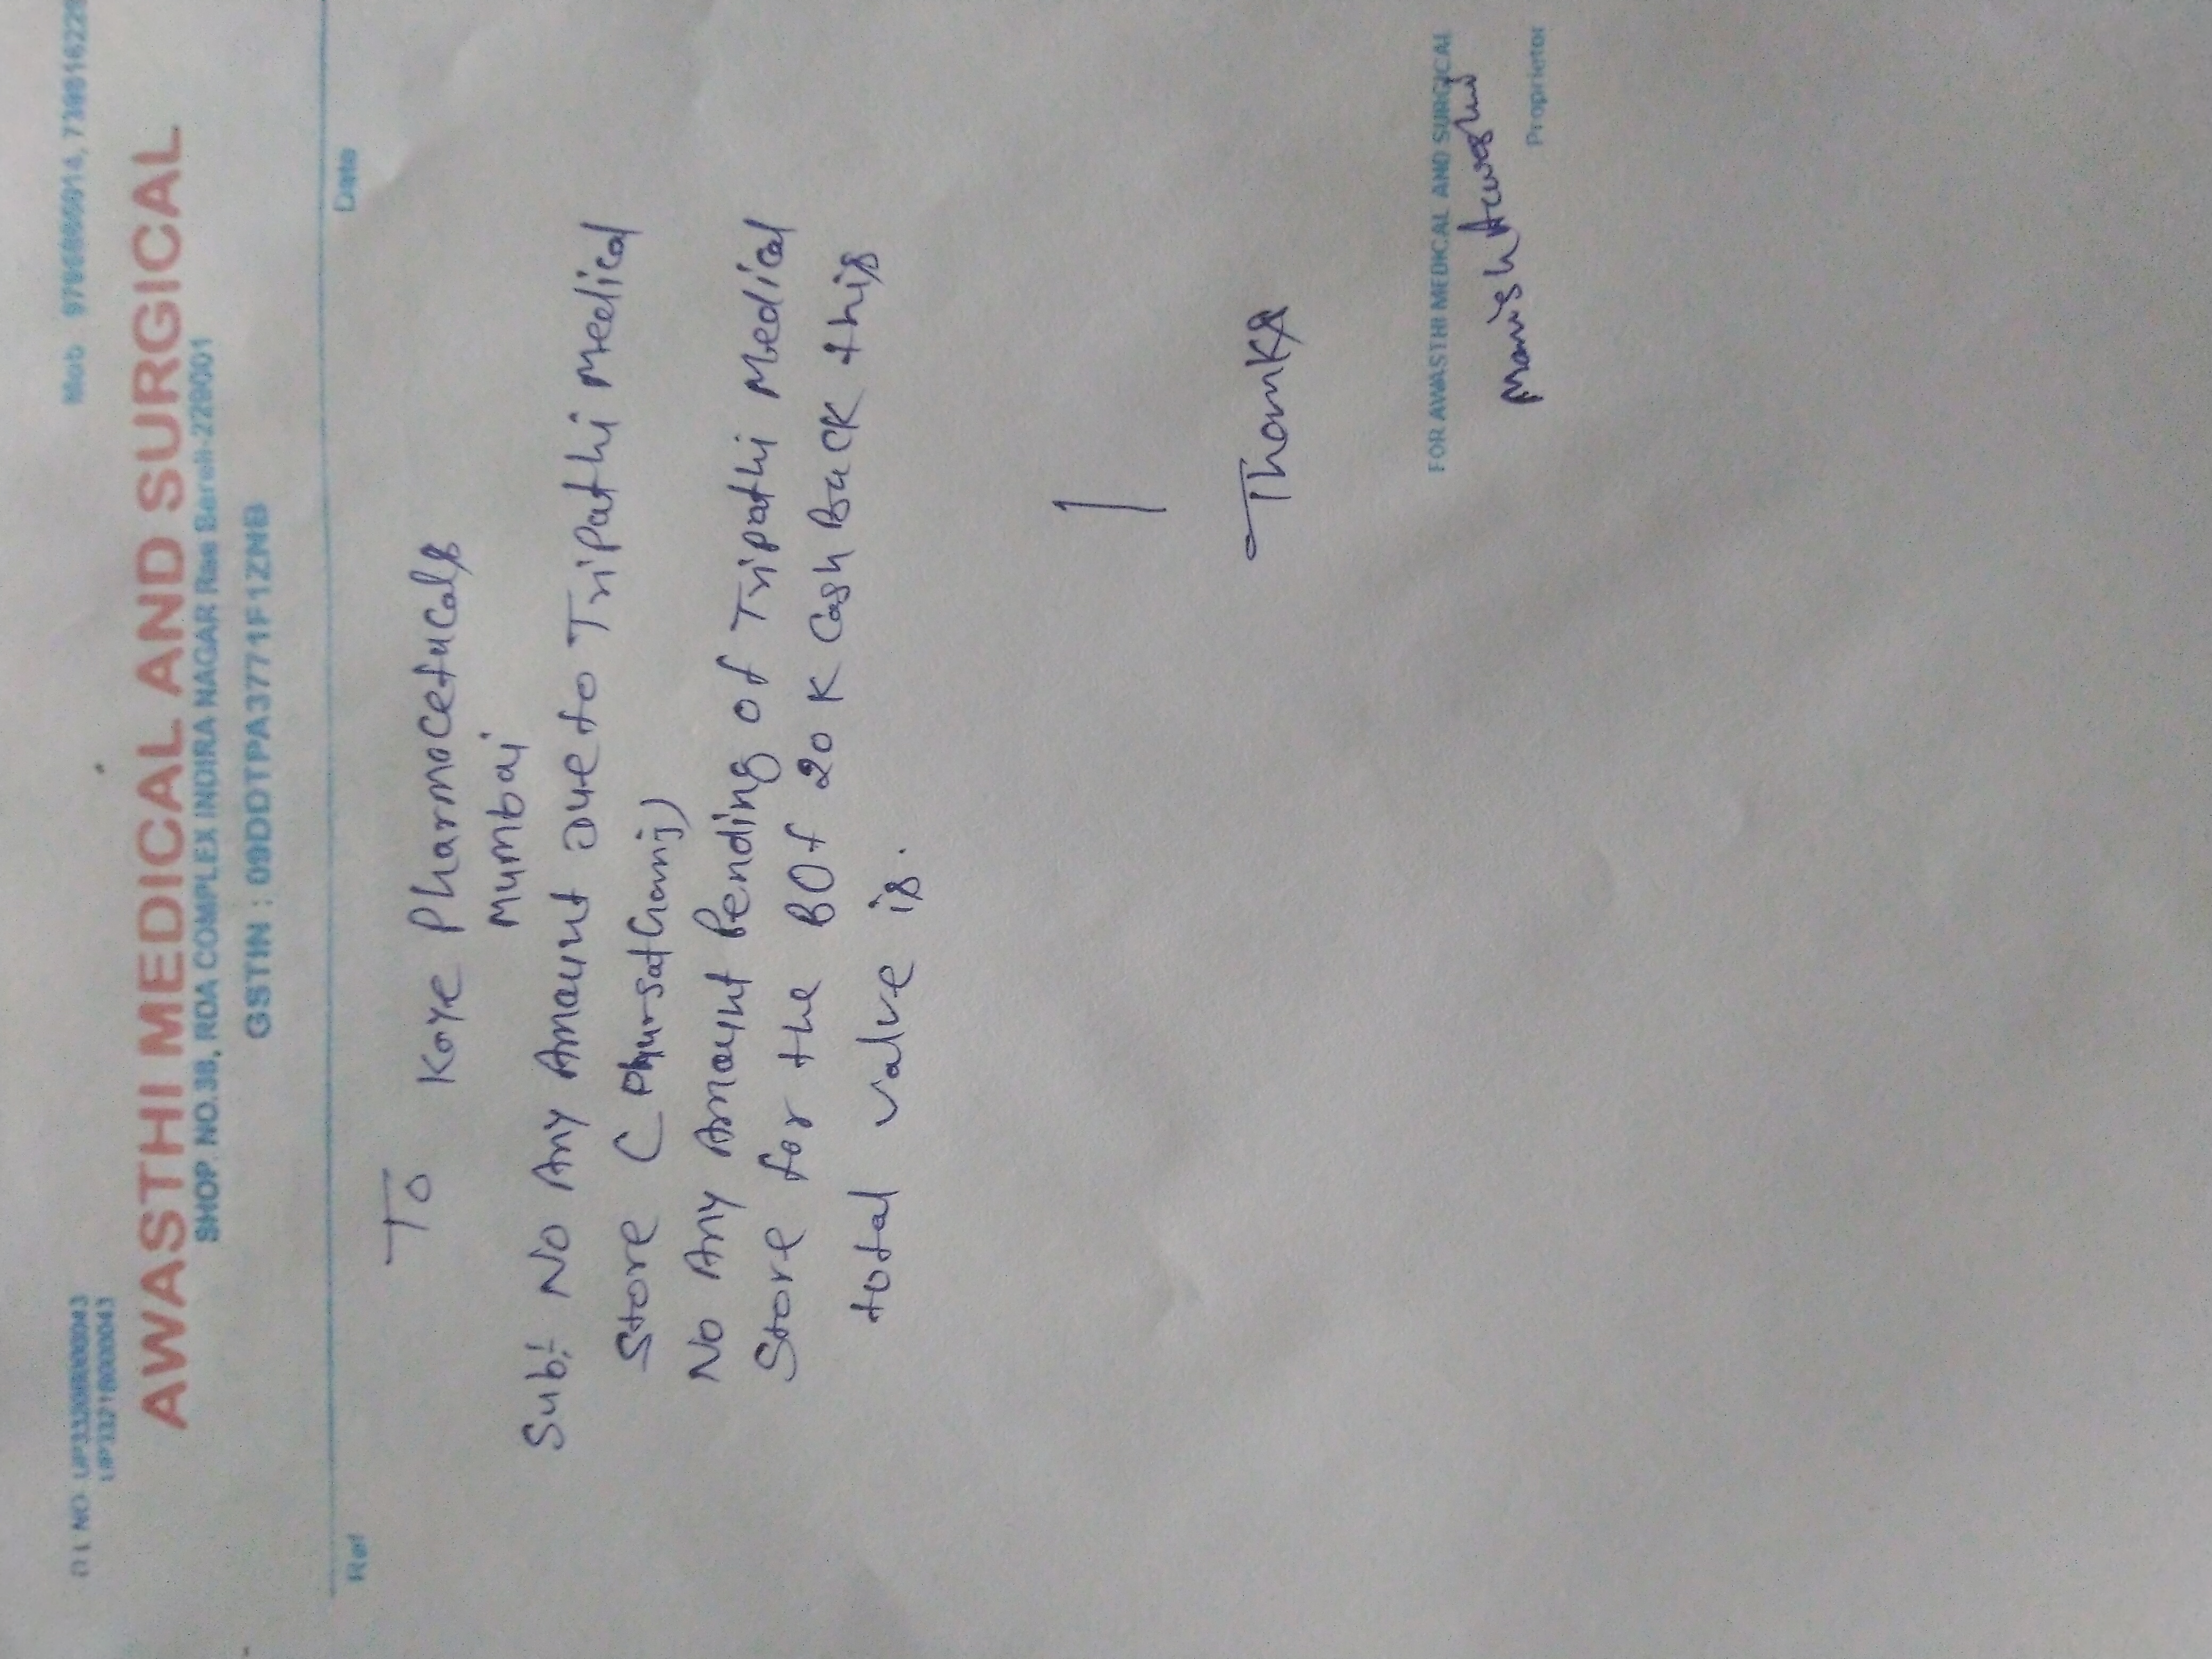 D L NO
Mob
AWASTHI MEDICAL AND SURGICAL
SHOP. NO.38, RDA COMPLEX INDIRA NAGAR Rae Bareli-229001
GSTIN : 09DDTPA3771F1ZNB
Ref
Date
To
Kaye Pharmocetucals
Mumbai
Sub: No Any Amount Due to Tripathi Medical
Store (
No Any Amount Pending of Tripathi Medical
Store for the BOf 20 K Cash Back this
total valve is.
Thanks
FOR AWASTHI MEDICAL AND SURGICAL
Manish Awasthi
Proprietor